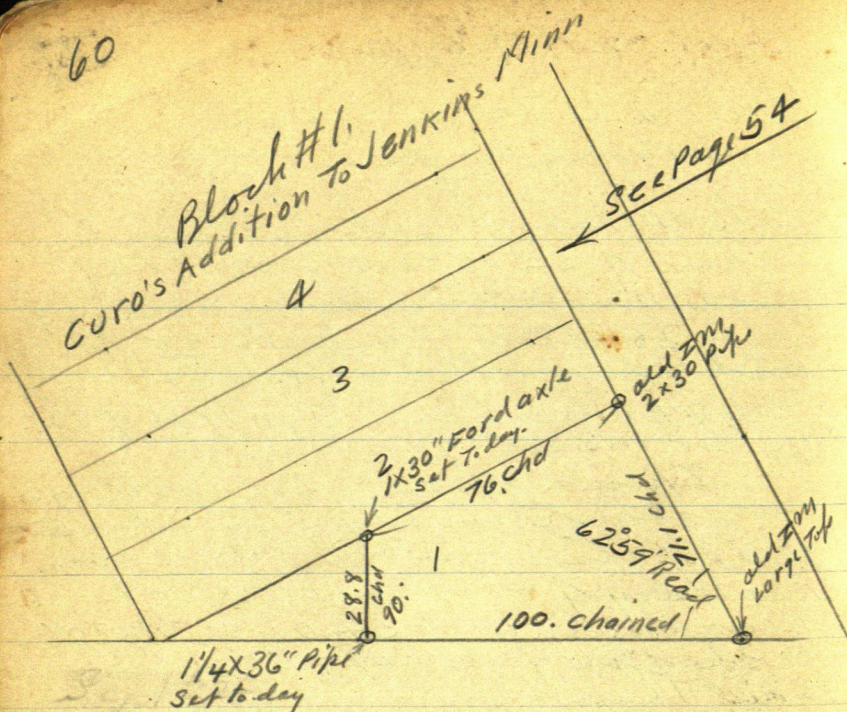 60
Block #1.
Curo's Addition To Jenkins Minn
See Page 54
4
3
2
1x30" Ford axle
set Today.
old Im
2x30 Pipe
76. Chd
1
28.8
chd
90.
62°59' Read
100. chained
old Im
Large Top
1 1/4 X 36" Pipe
set to day